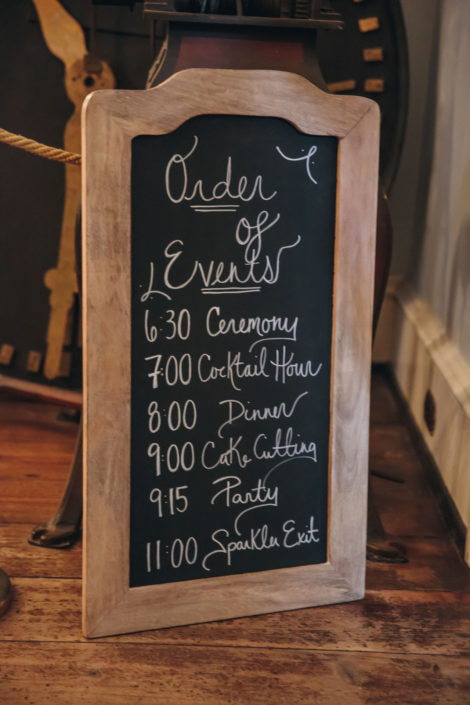 Order
of
Events
6:30 Ceremony
7:00 Cocktail Hour
8:00 Dinner
9:00 Cake Cutting
9:15 Party
11:00 Sparkler Exit